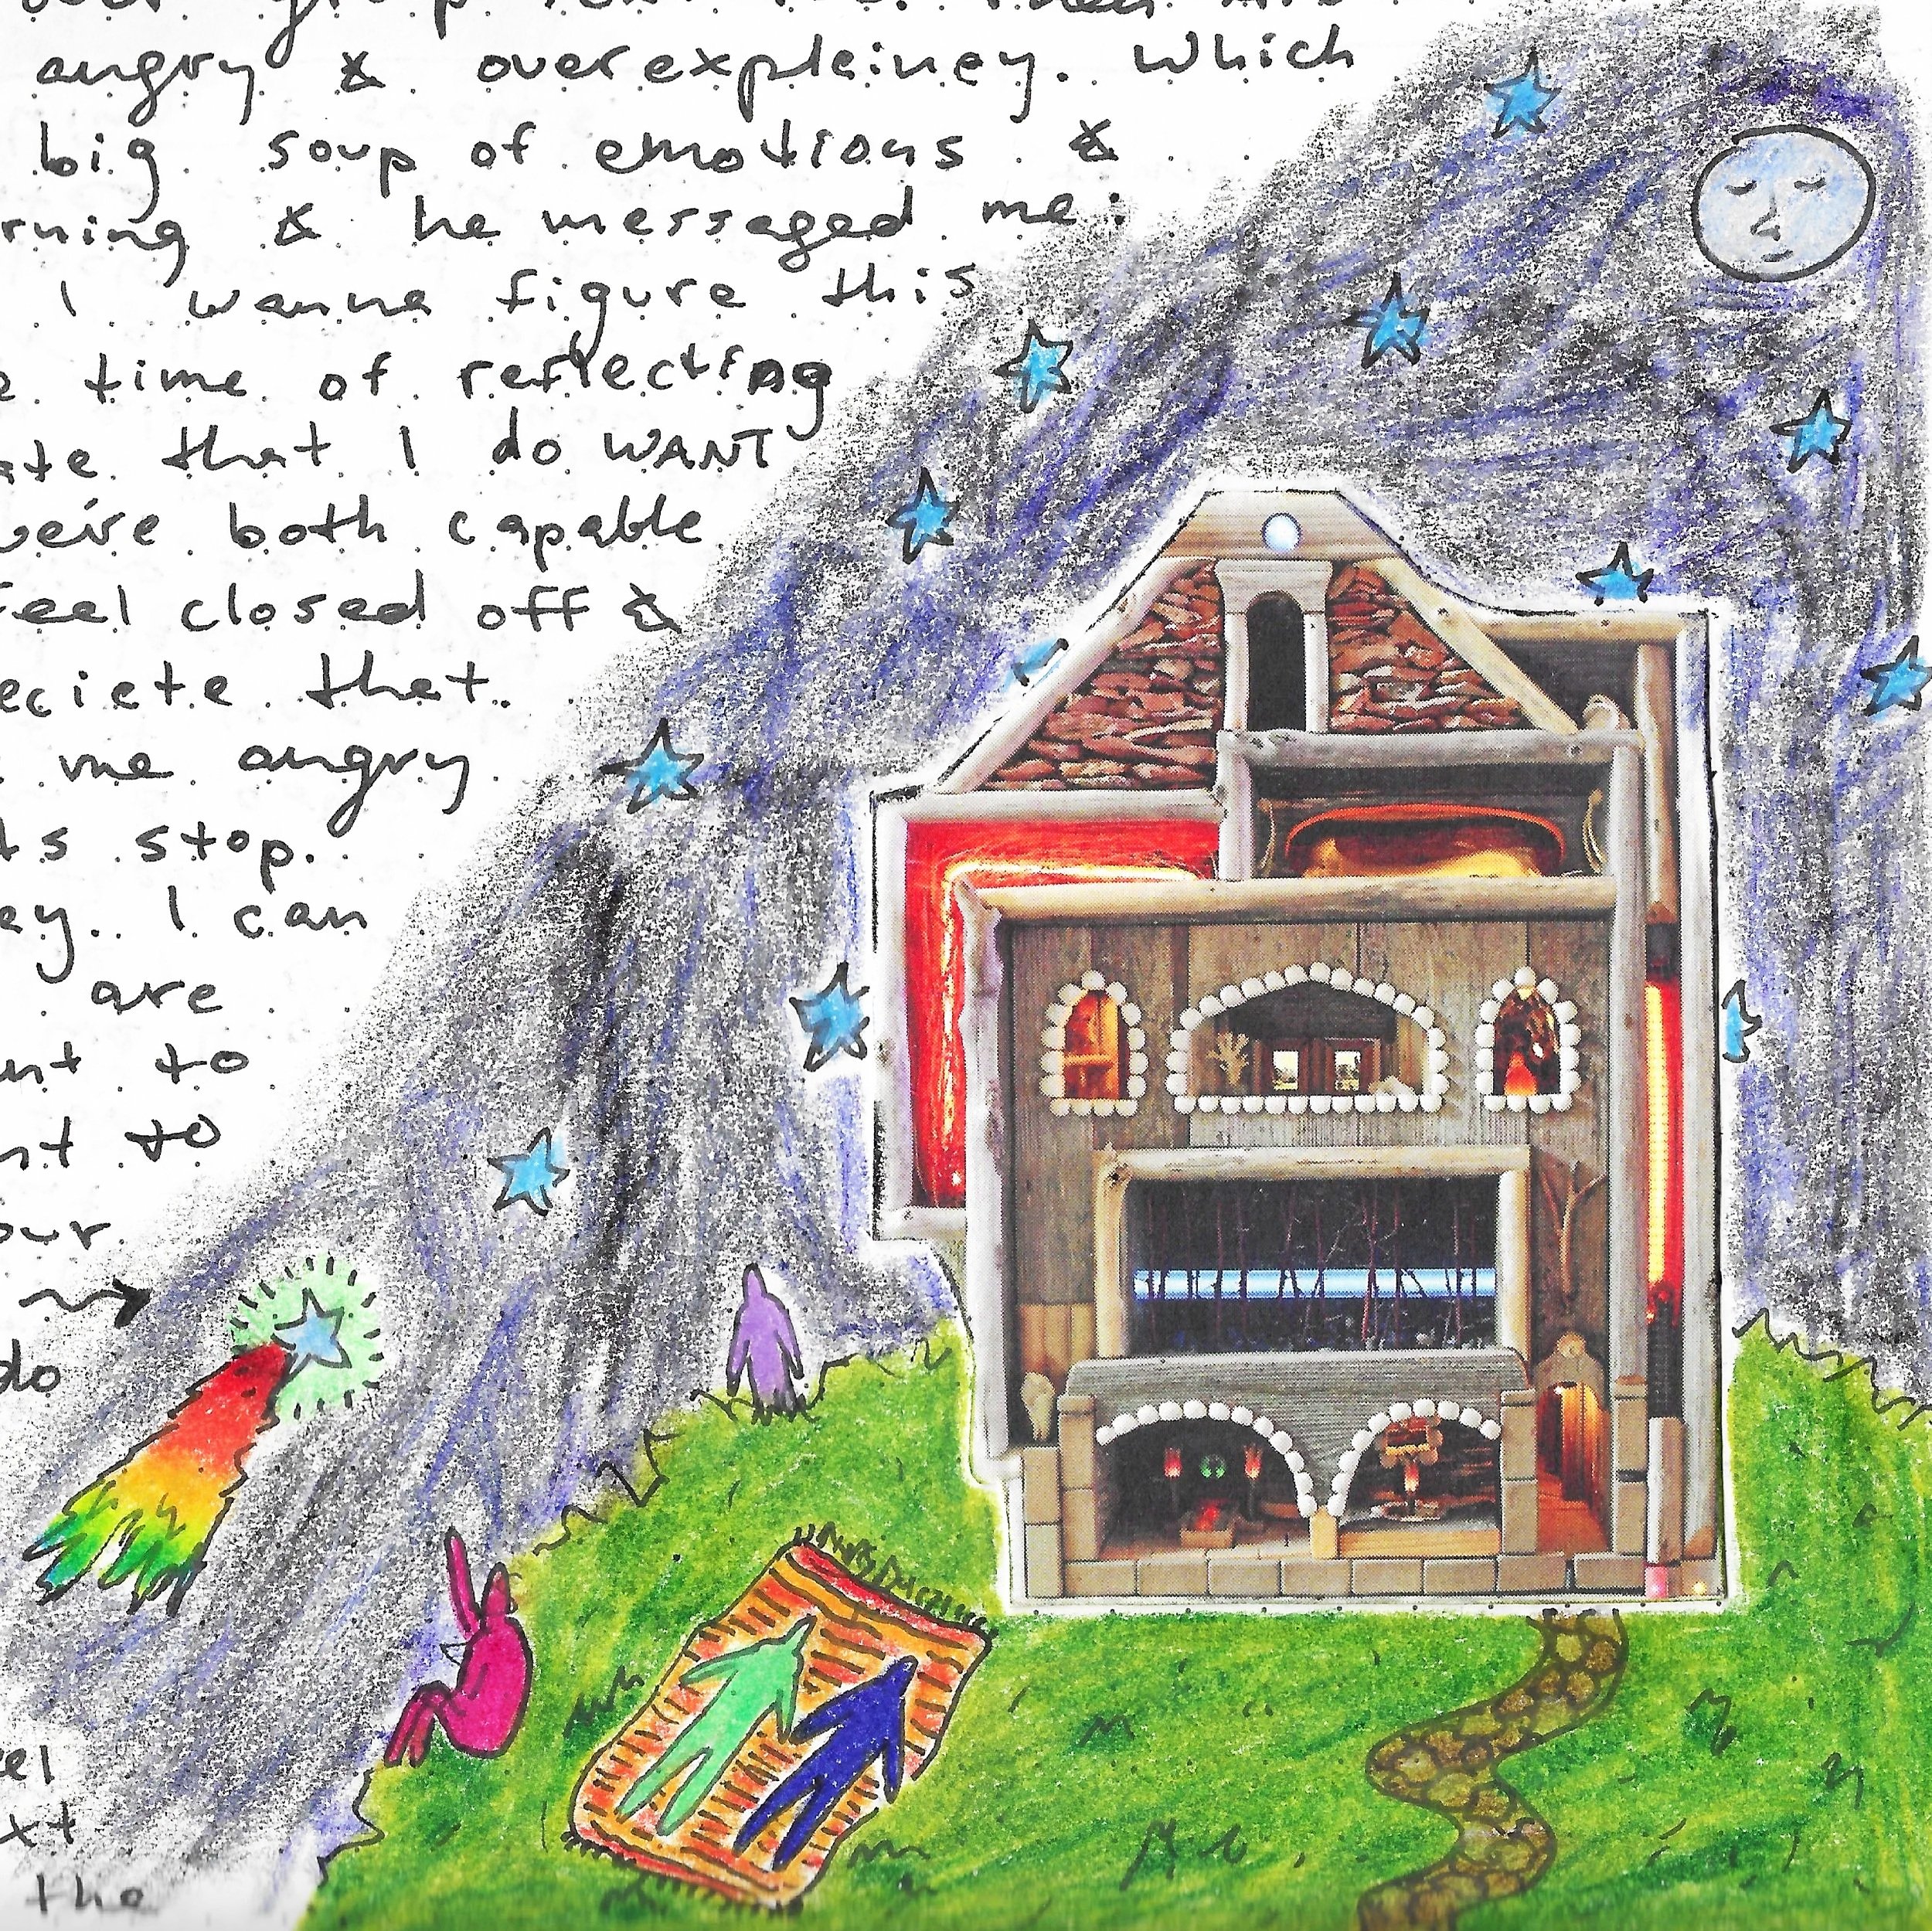 angry & overexplainey. Which
big soup of emotions &
rning & he messaged me:
I wanna figure this
time of reflecting
ate that I do WANT
we're both capable
feel closed off &
eciate that.
me angry
ts stop.
ey. I can
are
nt to
nt to
our
do
el
xt
the